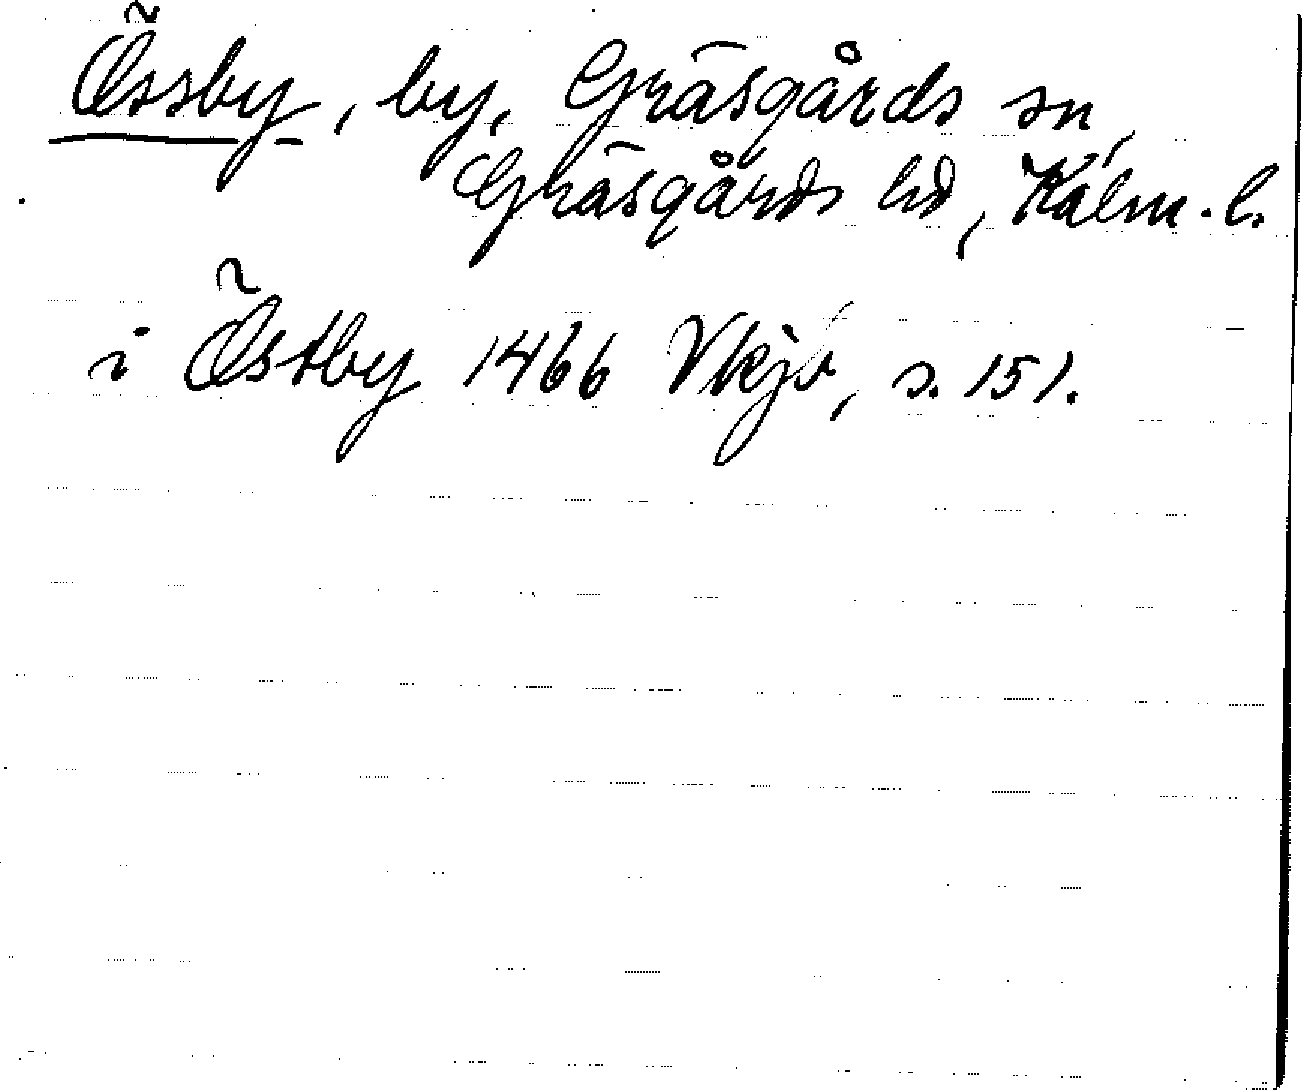 Össby, by, Gräsgårds sn,
Gräsgårds hd, Kalm. l.
i Östby 1466 Vkjb, s. 151.